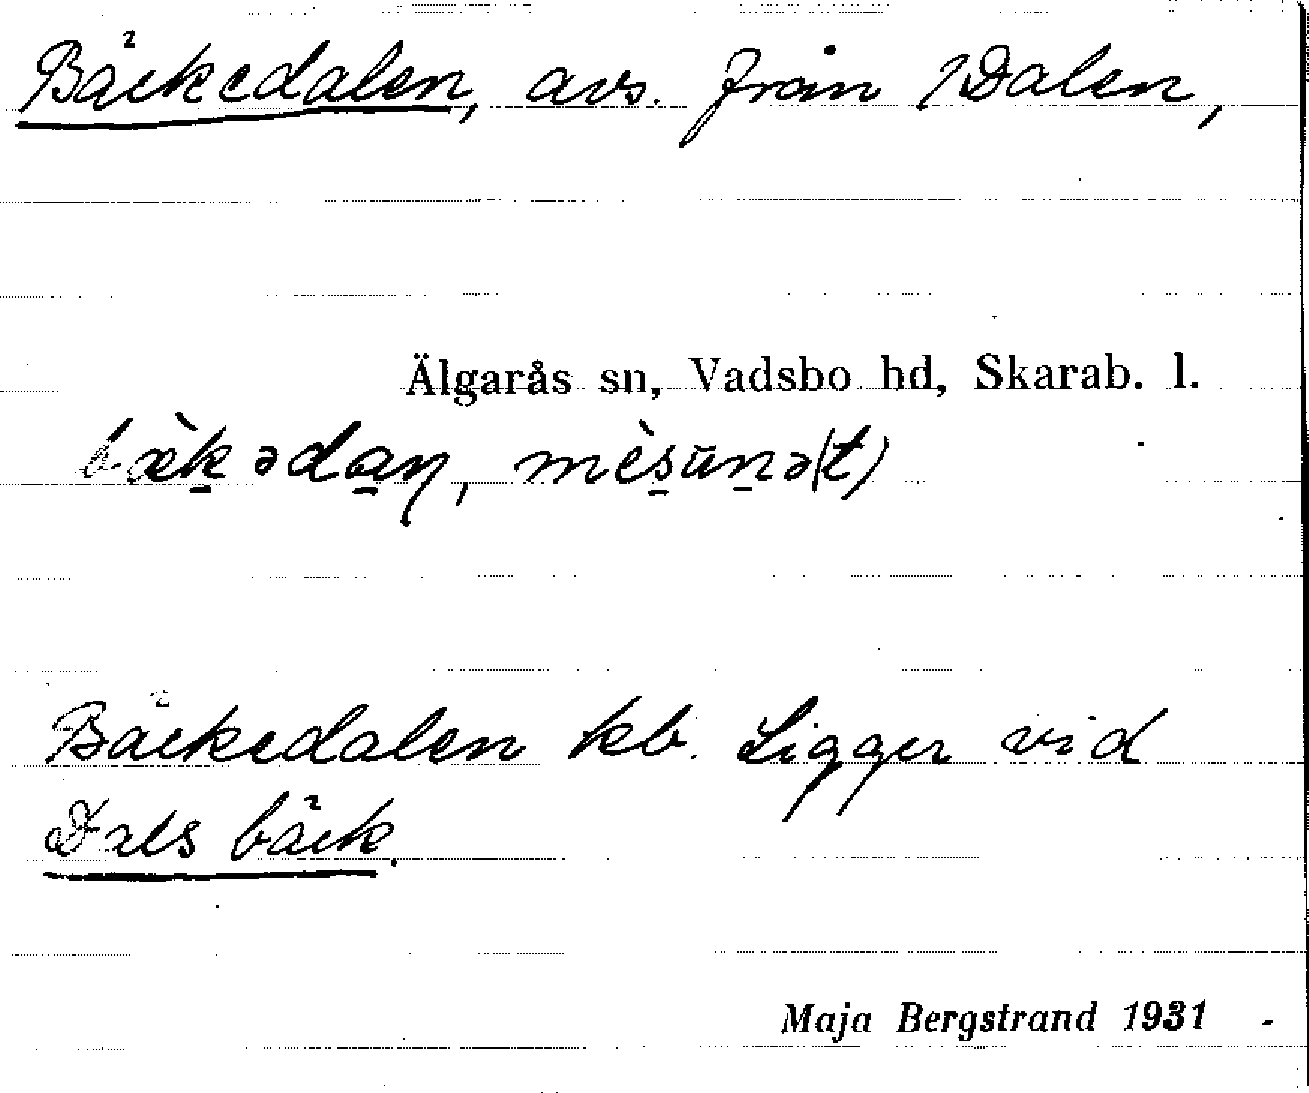 Bäckedalen, avs. från 1 Dalen,
Älgarås sn, Vadsbo hd, Skarab. l.
bæ̀k̠əda̠ņ, mès̠ūn̠ə(t)
Bäckedalen kb. Ligger vid
Dals bäck.
Maja Bergstrand 1931